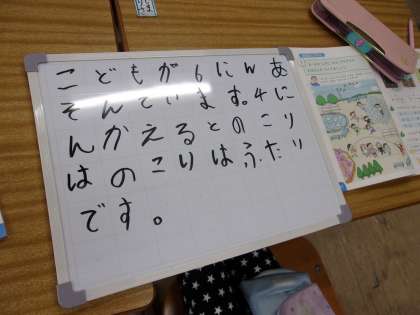 こどもが6にんあ
そんでいます。4に
んかえるとのこり
はのこりはふたり
です。